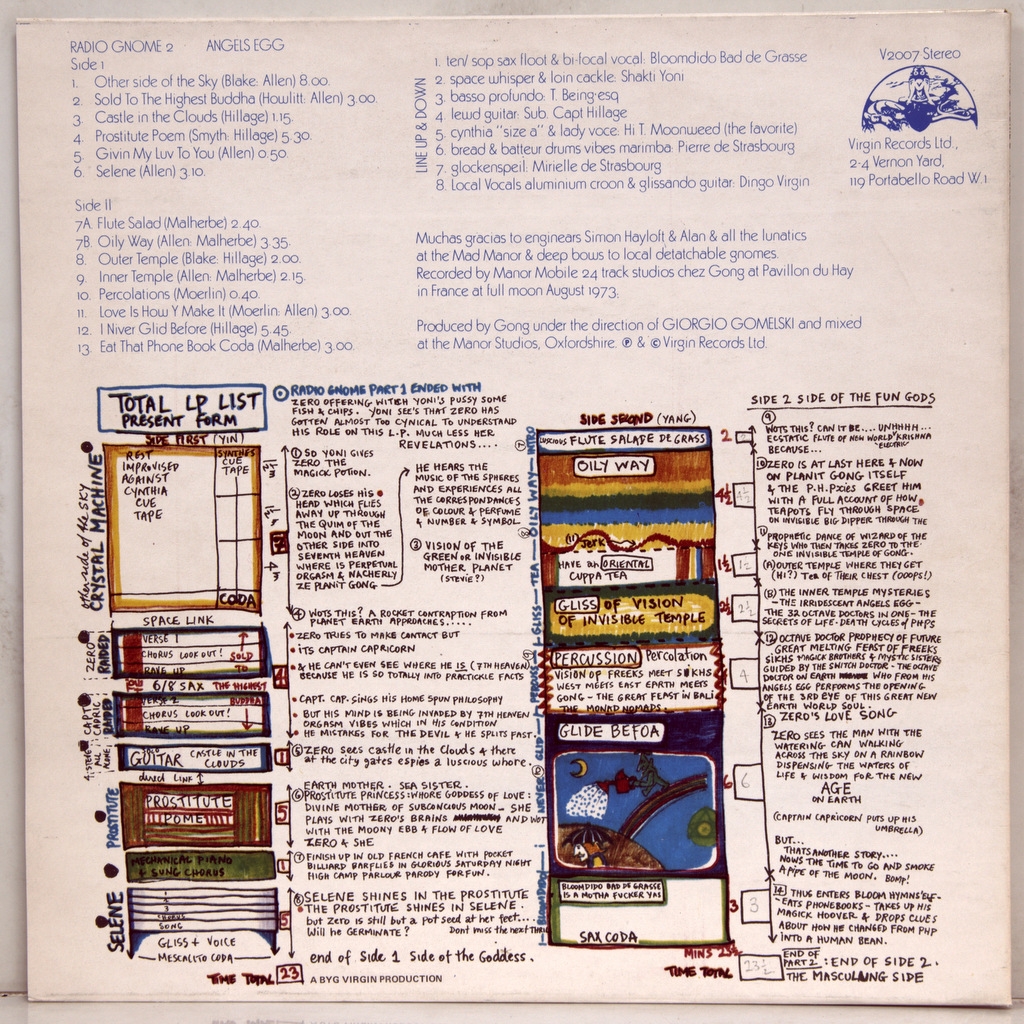 RADIO GNOME 2 ANGELS EGG
Side I
1. Other side of the Sky (Blake: Allen) 8.00.
2. Sold To The Highest Buddha (Howlitt: Allen) 3.00.
3. Castle in the Clouds (Hillage) 1.15.
4. Prostitute Poem (Smyth: Hillage) 5.30.
5. Givin My Luv To You (Allen) 0.50.
6. Selene (Allen) 3.10.
Side II
7A. Flute Salad (Malherbe) 2.40.
7B. Oily Way (Allen: Malherbe) 3.35.
8. Outer Temple (Blake: Hillage) 2.00.
9. Inner Temple (Allen: Malherbe) 2.15.
10. Percolations (Moerlin) 0.40.
11. Love Is How Y Make It (Moerlin: Allen) 3.00.
12. I Niver Glid Before (Hillage) 5.45.
13. Eat That Phone Book Coda (Malherbe) 3.00.
LINE UP & DOWN
1. ten/ sop sax floot & bi-focal vocal: Bloomdido Bad de Grasse
2. space whisper & loin cackle: Shakti Yoni
3. basso profundo: T. Being·esq
4. lewd guitar: Sub. Capt Hillage
5. cynthia "size a" & lady voce: Hi T. Moonweed (the favorite)
6. bread & batteur drums vibes marimba: Pierre de Strasbourg
7. glockenspeil: Mirielle de Strasbourg
8. Local Vocals aluminium croon & glissando guitar: Dingo Virgin
V2007 Stereo
Virgin Records Ltd.,
2-4 Vernon Yard,
119 Portabello Road W.1
Muchas gracias to enginears Simon Hayloft & Alan & all the lunatics
at the Mad Manor & deep bows to local detatchable gnomes.
Recorded by Manor Mobile 24 track studios chez Gong at Pavillon du Hay
in France at full moon August 1973;
Produced by Gong under the direction of GIORGIO GOMELSKI and mixed
at the Manor Studios, Oxfordshire. ℗ & © Virgin Records Ltd.
TOTAL LP LIST
PRESENT FORM
SIDE FIRST (YIN)
other side of the SKY
CRYSTAL MACHINE
REST
IMPROVISED
AGAINST
CYNTHIA
CUE
TAPE
SYNTHES
CUE
TAPE
CODA
SPACE LINK
ZERO
RAIDED
VERSE 1
CHORUS LOOK OUT!
RAVE UP
SOLD
TO
6/8 SAX THE HIGHEST
BUDDHA
VERSE 2
CHORUS LOOK OUT!
RAVE UP
GUITAR CASTLE IN THE
CLOUDS
LINK
PROSTITUTE
PROSTITUTE
POME
MECHANICAL PIANO
& SUNG CHORUS
SELENE
CHORUS
SONG
GLISS + VOICE
MESCALITO CODA
TIME TOTAL 23
A BYG VIRGIN PRODUCTION
RADIO GNOME PART 1 ENDED WITH
ZERO OFFERING WITCH YONI'S PUSSY SOME
FISH & CHIPS. YONI SEE'S THAT ZERO HAS
GOTTEN ALMOST TOO CYNICAL TO UNDERSTAND
HIS ROLE ON THIS L.P. MUCH LESS HER
REVELATIONS....
1 SO YONI GIVES
ZERO THE
MAGICK POTION.
2 ZERO LOSES HIS
HEAD WHICH FLIES
AWAY UP THROUGH
THE QUIM OF THE
MOON AND OUT THE
OTHER SIDE INTO
SEVENTH HEAVEN
WHERE IS PERPETUAL
ORGASM & NACHERLY
ZE PLANIT GONG
HE HEARS THE
MUSIC OF THE SPHERES
AND EXPERIENCES ALL
THE CORRESPONDANCES
OF COLOUR & PERFUME
& NUMBER & SYMBOL
3 VISION OF THE
GREEN OR INVISIBLE
MOTHER PLANET
(STEVIE?)
4 WOTS THIS? A ROCKET CONTRAPTION FROM
PLANET EARTH APPROACHES.....
ZERO TRIES TO MAKE CONTACT BUT
ITS CAPTAIN CAPRICORN
& HE CAN'T EVEN SEE WHERE HE IS (7TH HEAVEN)
BECAUSE HE IS SO TOTALLY INTO PRACTICKLE FACTS
CAPT. CAP. SINGS HIS HOME SPUN PHILOSOPHY
BUT HIS MIND IS BEING INVADED BY 7TH HEAVEN
ORGASM VIBES WHICH IN HIS CONDITION
HE MISTAKES FOR THE DEVIL & HE SPLITS FAST.
5 ZERO sees castle in the Clouds & there
at the city gates espies a luscious whore.
EARTH MOTHER. SEA SISTER.
6 PROSTITUTE PRINCESS: WHORE GODDESS OF LOVE:
DIVINE MOTHER OF SUBCONCIOUS MOON – SHE
PLAYS WITH ZERO'S BRAINS AND WOT
WITH THE MOONY EBB & FLOW OF LOVE
ZERO & SHE
7 FINISH UP IN OLD FRENCH CAFE WITH POCKET
BILLIARD BARFLIES IN GLORIOUS SATURDAY NIGHT
HIGH CAMP PARLOUR PARODY FOR FUN.
8 SELENE SHINES IN THE PROSTITUTE
THE PROSTITUTE SHINES IN SELENE.
but ZERO is still but a pot seed at her feet....
Will he GERMINATE? Dont miss the next
end of Side 1 Side of the Goddess.
SIDE SECOND (YANG)
LUSCIOUS FLUTE SALADE DE GRASS
OILY WAY
JERK
HAVE an ORIENTAL
CUPPA TEA
GLISS OF VISION
OF INVISIBLE TEMPLE
PERCUSSION Percolation
VISION OF FREEKS MEET SIKHS
WEST MEETS EAST EARTH MEETS
GONG – THE GREAT FEAST IN BALI
THE MONAD NOMADS.
GLIDE BEFOA
BLOOMDIDO BAD DE GRASSE
IS A MOTHA FUCKER YAS
SAX CODA
MINS 23½
TIME TOTAL 23½
SIDE 2 SIDE OF THE FUN GODS
9
WOTS THIS? CAN IT BE.... UNHHHH...
ECSTATIC FLUTE OF NEW WORLD KRISHNA
ELECTRIC
BECAUSE...
10 ZERO IS AT LAST HERE & NOW
ON PLANIT GONG ITSELF
& THE P.H.Pxies GREET HIM
WITH A FULL ACCOUNT OF HOW
TEAPOTS FLY THROUGH SPACE
ON INVISIBLE BIG DIPPER THROUGH THE
11 PROPHETIC DANCE OF WIZARD OF THE
KEYS WHO THEN TAKES ZERO TO THE
ONE INVISIBLE TEMPLE OF GONG.
(A) OUTER TEMPLE WHERE THEY GET
(HI?) TEA OF THEIR CHEST (OOOPS!)
(B) THE INNER TEMPLE MYSTERIES
– THE IRRIDESCENT ANGELS EGG –
THE 32 OCTAVE DOCTORS IN ONE – THE
SECRETS OF LIFE-DEATH CYCLES OF PHPS
12 OCTAVE DOCTOR PROPHECY OF FUTURE
GREAT MELTING FEAST OF FREEKS
SIKHS MAGICK BROTHERS & MYSTIC SISTERS
GUIDED BY THE SWITCH DOCTOR – THE OCTAVE
DOCTOR ON EARTH WHO FROM HIS
ANGELS EGG PERFORMS THE OPENING
OF THE 3RD EYE OF THIS GREAT NEW
EARTH WORLD SOUL.
13 ZERO'S LOVE SONG
ZERO SEES THE MAN WITH THE
WATERING CAN WALKING
ACROSS THE SKY ON A RAINBOW
DISPENSING THE WATERS OF
LIFE & WISDOM FOR THE NEW
AGE
ON EARTH
(CAPTAIN CAPRICORN PUTS UP HIS
UMBRELLA)
BUT...
THATS ANOTHER STORY....
NOWS THE TIME TO GO AND SMOKE
A PIPE OF THE MOON. BOMP!
14 THUS ENTERS BLOOM HYMNS'ELF
– EATS PHONEBOOKS – TAKES UP HIS
MAGICK HOOVER & DROPS CLUES
ABOUT HOW HE CHANGED FROM PHP
INTO A HUMAN BEAN.
END OF
PART 2 : END OF SIDE 2.
THE MASCULUNG SIDE